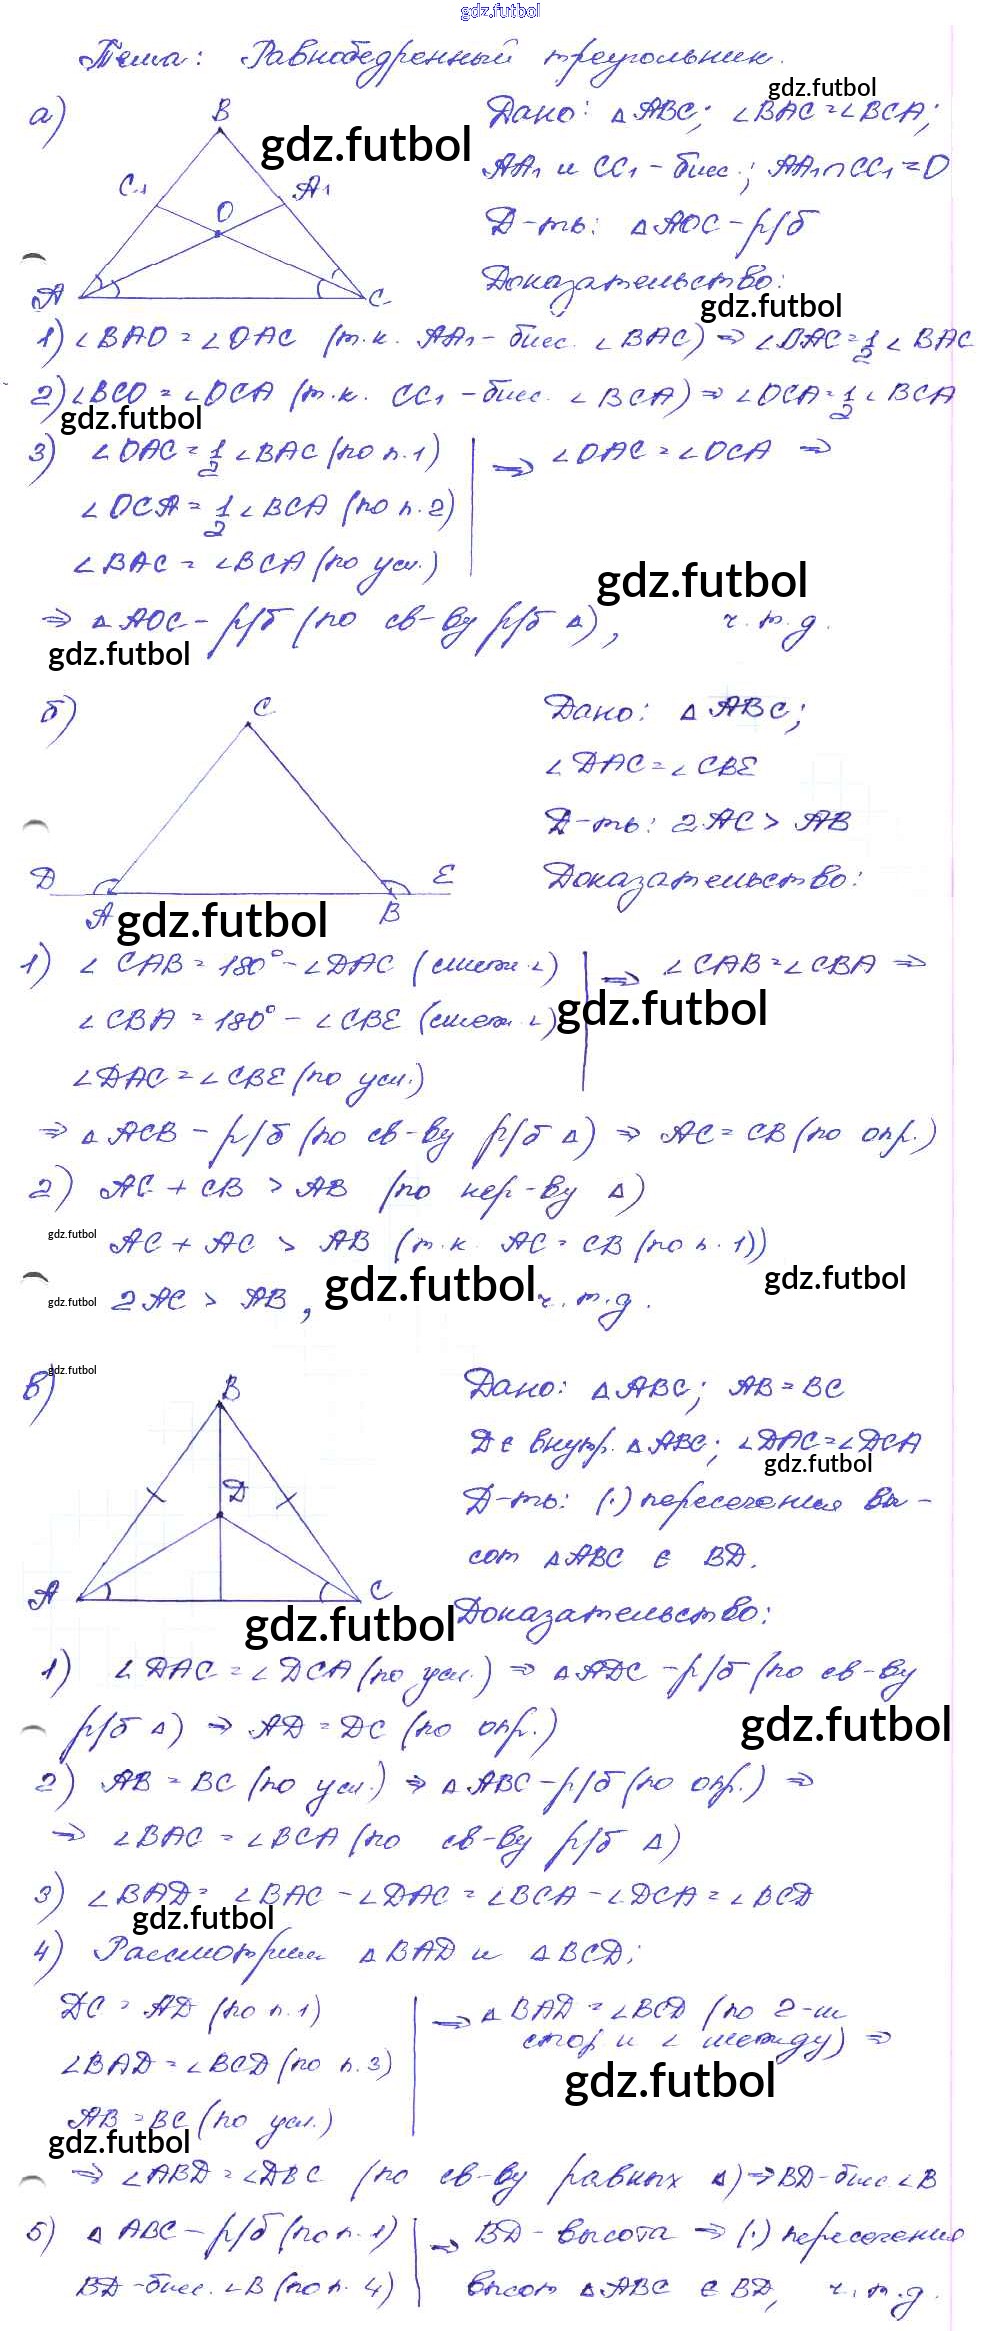 gdz.futbol
Тема: Равнобедренный треугольник.
gdz.futbol
а)
B
gdz.futbol
Дано: △ABC; ∠BAC=∠BCA;
C₁
A₁
O
AA₁ и CC₁ - бисс.; AA₁∩CC₁=O
Д-ть: △AOC - р/б
A
C
Доказательство:
gdz.futbol
1) ∠BAO = ∠OAC (т.к. AA₁ - бисс. ∠BAC) ⇒ ∠OAC = 1/2 ∠BAC
2) ∠BCO = ∠OCA (т.к. CC₁ - бисс. ∠BCA) ⇒ ∠OCA = 1/2 ∠BCA
gdz.futbol
3) ∠OAC = 1/2 ∠BAC (по п.1) ⇒ ∠OAC = ∠OCA ⇒
∠OCA = 1/2 ∠BCA (по п.2)
∠BAC = ∠BCA (по усл.)
gdz.futbol
⇒ △AOC - р/б (по св-ву р/б △), ч.т.д.
gdz.futbol
б)
C
Дано: △ABC;
∠DAC = ∠CBE
Д-ть: 2AC > AB
D
A
B
E
Доказательство:
gdz.futbol
1) ∠CAB = 180° - ∠DAC (смежн. ∠) ⇒ ∠CAB = ∠CBA ⇒
gdz.futbol
∠CBA = 180° - ∠CBE (смежн. ∠)
∠DAC = ∠CBE (по усл.)
⇒ △ACB - р/б (по св-ву р/б △) ⇒ AC = CB (по опр.)
2) AC + CB > AB (по нер-ву △)
gdz.futbol
AC + AC > AB (т.к. AC = CB (по п.1))
gdz.futbol
gdz.futbol
gdz.futbol
2AC > AB, ч.т.д.
gdz.futbol
в)
B
Дано: △ABC; AB = BC
D
D ∈ внутр. △ABC; ∠DAC = ∠DCA
gdz.futbol
Д-ть: (·) пересечения вы-
сот △ABC ∈ BD.
A
C
gdz.futbol
Доказательство:
1) ∠DAC = ∠DCA (по усл.) ⇒ △ADC - р/б (по св-ву
р/б △) ⇒ AD = DC (по опр.)
gdz.futbol
2) AB = BC (по усл.) ⇒ △ABC - р/б (по опр.) ⇒
⇒ ∠BAC = ∠BCA (по св-ву р/б △)
3) ∠BAD = ∠BAC - ∠DAC = ∠BCA - ∠DCA = ∠BCD
gdz.futbol
4) Рассмотрим △BAD и △BCD:
DC = AD (по п.1) ⇒ △BAD = ∠BCD (по 2-м
стор. и ∠ между) ⇒
∠BAD = ∠BCD (по п.3)
gdz.futbol
AB = BC (по усл.)
gdz.futbol
⇒ ∠ABD = ∠DBC (по св-ву равных △) ⇒ BD - бисс. ∠B
5) △ABC - р/б (по п.1) ⇒ BD - высота ⇒ (·) пересечения
BD - бисс. ∠B (по п.4) высот △ABC ∈ BD, ч.т.д.